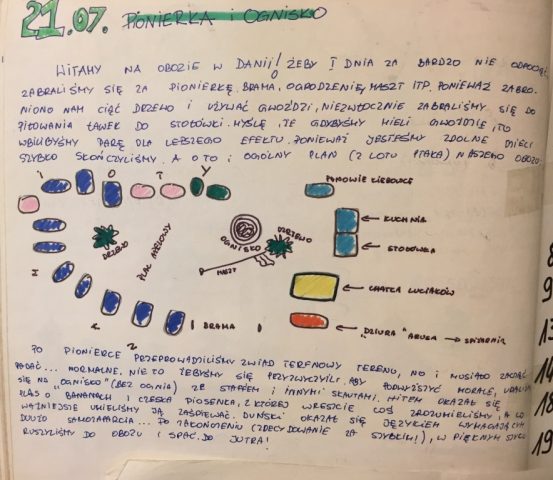 21.07. PIONIERKA i OGNISKO
WITAMY NA OBOZIE W DANII! ŻEBY I DNIA ZA BARDZO NIE ODPOCZĄĆ
ZABRALIŚMY SIĘ ZA PIONIERKĘ. BRAMA, OGRODZENIE, MASZT ITP. PONIEWAŻ ZABRO-
NIONO NAM CIĄĆ DRZEWO I UŻYWAĆ GWOŹDZI, NIEZWŁOCZNIE ZABRALIŚMY SIĘ DO
ŁAWEK DO STOŁÓWKI. MYŚLĘ, ŻE GDYBYŚMY MIELI GWOŹDZIE, TO
WBILIBYŚMY PARĘ DLA LEPSZEGO EFEKTU. PONIEWAŻ JESTEŚMY ZDOLNE DZIECI
SZYBKO SKOŃCZYLIŚMY. A OTO I OGÓLNY PLAN (Z LOTU PTAKA) NASZEGO OBOZU:
DRZEWO
PLAC APELOWY
OGNISKO
DRZEWO
MASZT
KUCHNIA
STOŁÓWKA
CHATKA
BRAMA
"DZIURA" → SPIŻARNIA
PO PIONIERCE PRZEPROWADZILIŚMY ZWIAD TERENOWY TERENU, NO I MUSIAŁO ZACZĄĆ
PADAĆ... NORMALNE. NIE TO ŻEBYŚMY SIĘ PRZYZWYCZAILI. ABY PODWYŻSZYĆ MORALE, UDALIŚMY
SIĘ NA "OGNISKO" (BEZ OGNIA) ZE STAFFEM I INNYMI SKAUTAMI. HITEM OKAZAŁ SIĘ
PLĄS O BANANACH I CZESKA PIOSENKA, Z KTÓREJ WRESZCIE COŚ ZROZUMIELIŚMY, A CO
WAŻNIEJSZE UMIELIŚMY JĄ ZAŚPIEWAĆ. DUŃSKI OKAZAŁ SIĘ JĘZYKIEM WYMAGAJĄCYM
DUŻO SAMOZAPARCIA... PO ZAKOŃCZENIU (ZDECYDOWANIE ZA SZYBKIM!), W PIĘKNYM SZYKU
RUSZYLIŚMY DO OBOZU I SPAĆ. DO JUTRA!
8
9
13
14
18
19